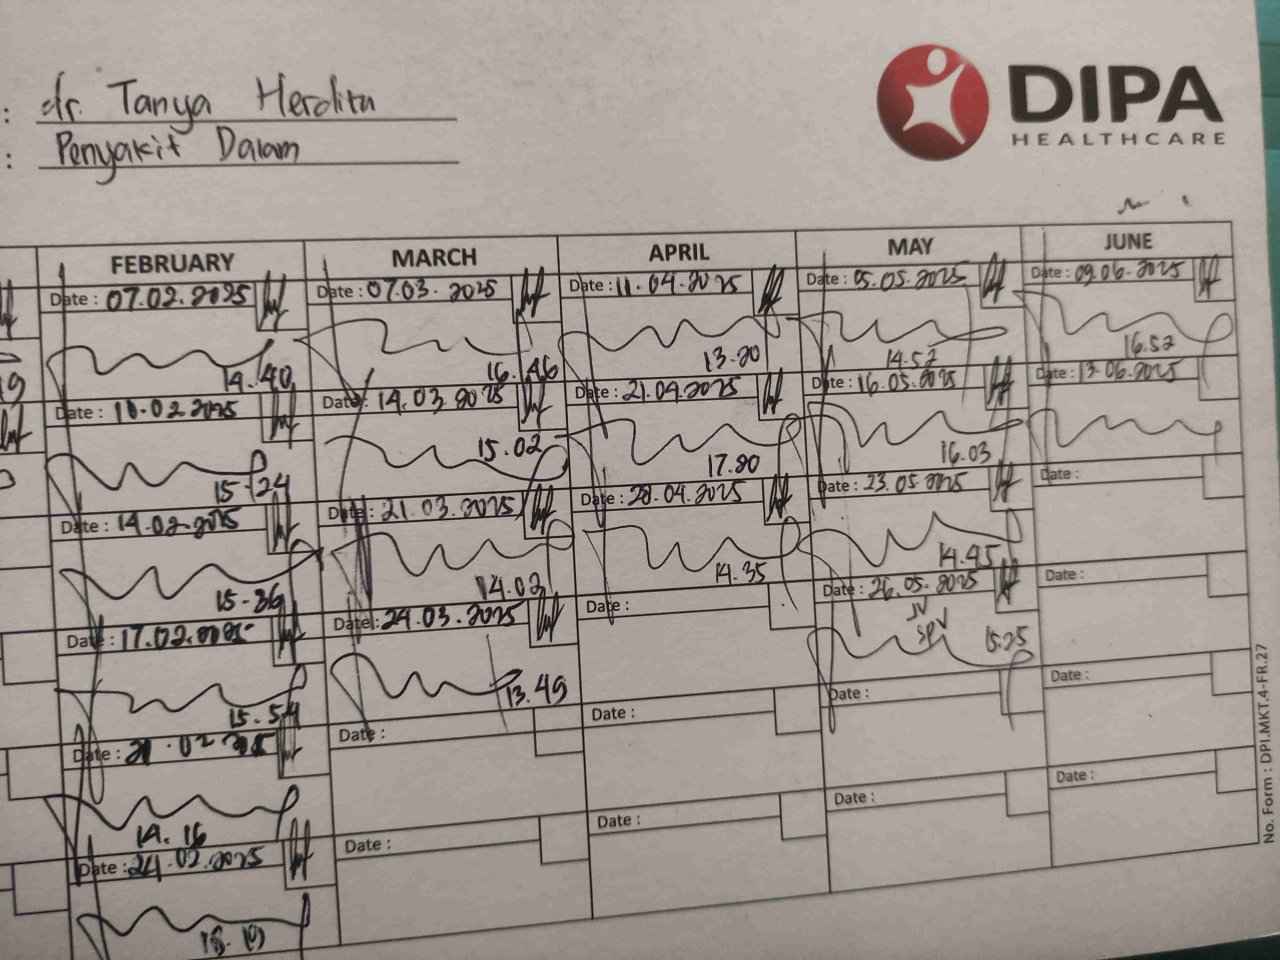 : dr. Tanya Herdita
: Penyakit Dalam
DIPA
HEALTHCARE
FEBRUARY MARCH APRIL MAY JUNE
Date : 07.02.2025 Date : 07.03.2025 Date : 11.04.2025 Date : 05.05.2025 Date : 09.06.2025
14.40 16.46 13.20 14.52 16.52
Date : 10.02.2025 Date : 14.03.2025 Date : 21.04.2025 Date : 16.05.2025 Date : 13.06.2025
15.24 15.02 17.20 16.03
Date : 14.02.2025 Date : 21.03.2025 Date : 28.04.2025 Date : 23.05.2025 Date :
15.36 14.03 14.35 14.45
Date : 17.02.2025 Date : 24.03.2025 Date : Date : 26.05.2025 Date :
JV
SPV
15.54 13.49 15.25
Date : 21.02.2025 Date : Date : Date : Date :
14.16
Date : 24.02.2025 Date : Date : Date : Date :
No. Form : DPI.MKT.4-FR.27